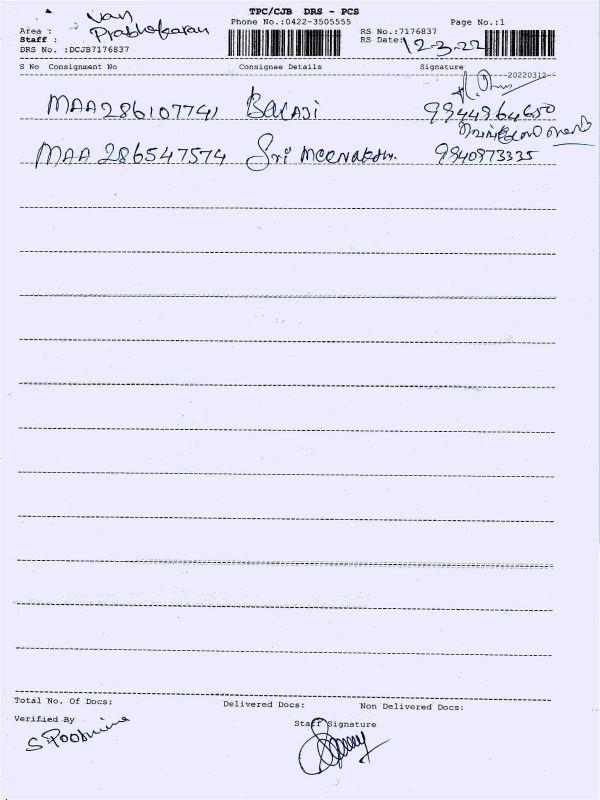 TPC/CJB DRS - PCS
Phone No.:0422-3505555 Page No.:1
Area : Van
Staff : Prabhakaran
RS No.:7176837
RS Date: 12-3-22
DRS No. :DCJB7176837
S No Consignment No Consignee Details Signature
20220312
MAA286107741 Balaji 9944964650
MAA 286547574 Sri Meenakshi. 9940973335
Total No. Of Docs: Delivered Docs: Non Delivered Docs:
Verified By Staff Signature